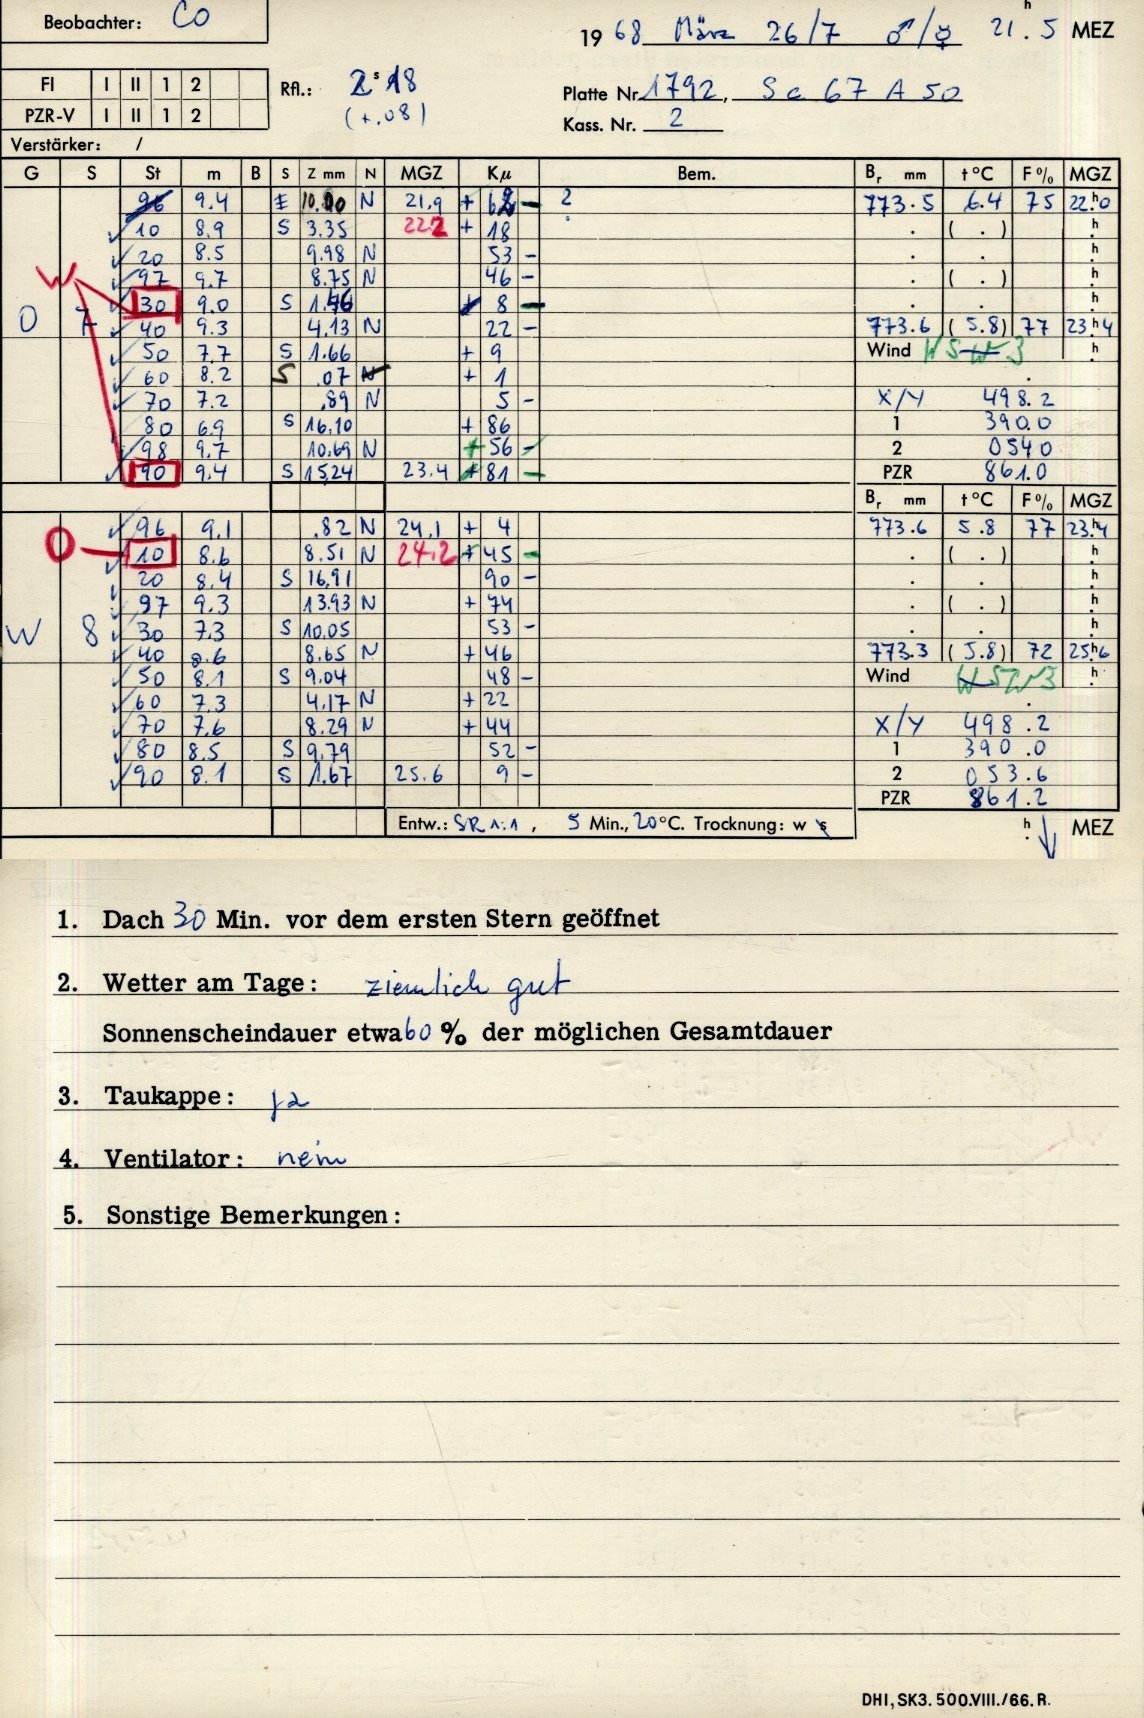 Beobachter: Co
1968 März 26/7 ♂/☿ 21h.5 MEZ
FI I II 1 2
PZR-V I II 1 2
Rfl.: 2s18
(+.08)
Platte Nr. 1792, Sc 67 A 50
Kass. Nr. 2
Verstärker: /
G S St m B S Z mm N MGZ Kμ Bem. Br mm t °C F% MGZ
96 9.4 N 21.9 + – ? 773.5 6.4 75 22h0
10 8.9 S 3.35 22.2 + 18 . ( . ) h
20 8.5 9.98 N 53 – . . h
W 97 9.7 8.75 N 46 – . ( . ) h
30 9.0 S 1.46 8 – . . h
O 7 40 9.3 4.13 N 22 – 773.6 (5.8) 77 23h4
50 7.7 S 1.66 + 9 Wind WSW 3 h
60 8.2 S .07 N + 1
70 7.2 .89 N 5 – X/Y 498.2
80 6.9 S 16.10 + 86 1 390.0
98 9.7 10.69 N + 56 – 2 054.0
90 9.4 S 15.24 23.4 + 81 – PZR 861.0
Br mm t °C F% MGZ
96 9.1 .82 N 24.1 + 4 773.6 5.8 77 23h4
O 10 8.6 8.51 N 24.2 + 45 – . ( . ) h
20 8.4 S 16.91 90 – . . h
97 9.3 13.93 N + 74 . ( . ) h
W 8 30 7.3 S 10.05 53 – . . h
40 8.6 8.65 N + 46 773.3 (5.8) 72 25h6
50 8.1 S 9.04 48 – Wind WSW 3 h
60 7.3 4.17 N + 22
70 7.6 8.29 N + 44 X/Y 498.2
80 8.5 S 9.79 52 – 1 390.0
90 8.1 S 1.67 25.6 9 – 2 053.6
PZR 861.2
Entw.: SR 1:1, 5 Min., 20°C. Trocknung: w s h. MEZ
1. Dach 30 Min. vor dem ersten Stern geöffnet
2. Wetter am Tage: ziemlich gut
Sonnenscheindauer etwa 60 % der möglichen Gesamtdauer
3. Taukappe: ja
4. Ventilator: nein
5. Sonstige Bemerkungen:
DHI, SK3. 500.VIII./66. R.